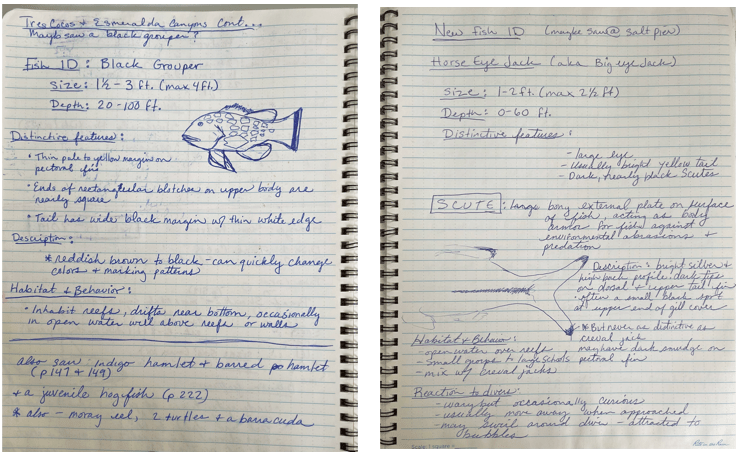 Tres Cocos & Esmeralda Canyons cont...
Maybe saw a black grouper?
Fish ID: Black Grouper
Size: 1½ - 3 ft. (max 4ft)
Depth: 20-100 ft.
Distinctive features:
• Thin pale to yellow margin on
pectoral fin
• Ends of rectangular blotches on upper body are
nearly square
• Tail has wide black margin w/ thin white edge
Description:
* reddish brown to black - can quickly change
colors & marking patterns
Habitat & Behavior:
• Inhabit reefs, drifts near bottom, occasionally
in open water well above reefs or walls
also saw indigo hamlet & barred hamlet
(p 147 & 149)
& a juvenile hogfish (p 222)
* also - moray eel, 2 turtles & a barracuda
New Fish ID (maybe saw @ Salt Pier)
Horse Eye Jack (aka Big eye Jack)
Size: 1-2 ft. (max 2½ ft)
Depth: 0-60 ft.
Distinctive features:
- large eye
- usually bright yellow tail
- Dark, nearly black Scutes
SCUTE: large bony external plate on surface
of fish, acting as body
armor for fish against
environmental abrasions &
predation
Description: bright silver &
high back profile. dark tips
on dorsal & upper tail fin
• often a small black spot
at upper end of gill cover
* But never as distinctive as
creval jack
may have dark smudge on
pectoral fin
Habitat & Behavior:
- open water over reefs
- small groups to large schools
- mix w/ creval jacks
Reaction to divers:
- wary but occasionally curious
- usually move away when approached
- may swirl around diver - attracted to
bubbles